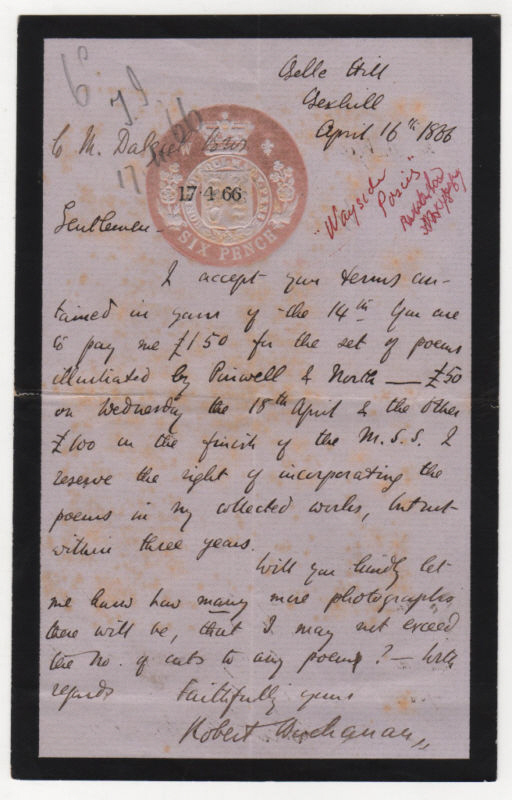 Belle Hill
Bexhill
April 16th 1866
Dalziel Bros
17 4 66
SIX PENCE
"Wayside
Posies"
Gentlemen –
I accept your terms con-
tained in yours of the 14th. You are
to pay me £150 for the set of poems
illustrated by Pinwell & North — £50
on Wednesday the 18th April & the other
£100 on the finish of the M.S.S. I
reserve the right of incorporating the
poems in my collected works, but not
within three years.
Will you kindly let
me know how many more photographs
there will be, that I may not exceed
the No. of cuts to any poem? — With
regards Faithfully yours
Robert Buchanan